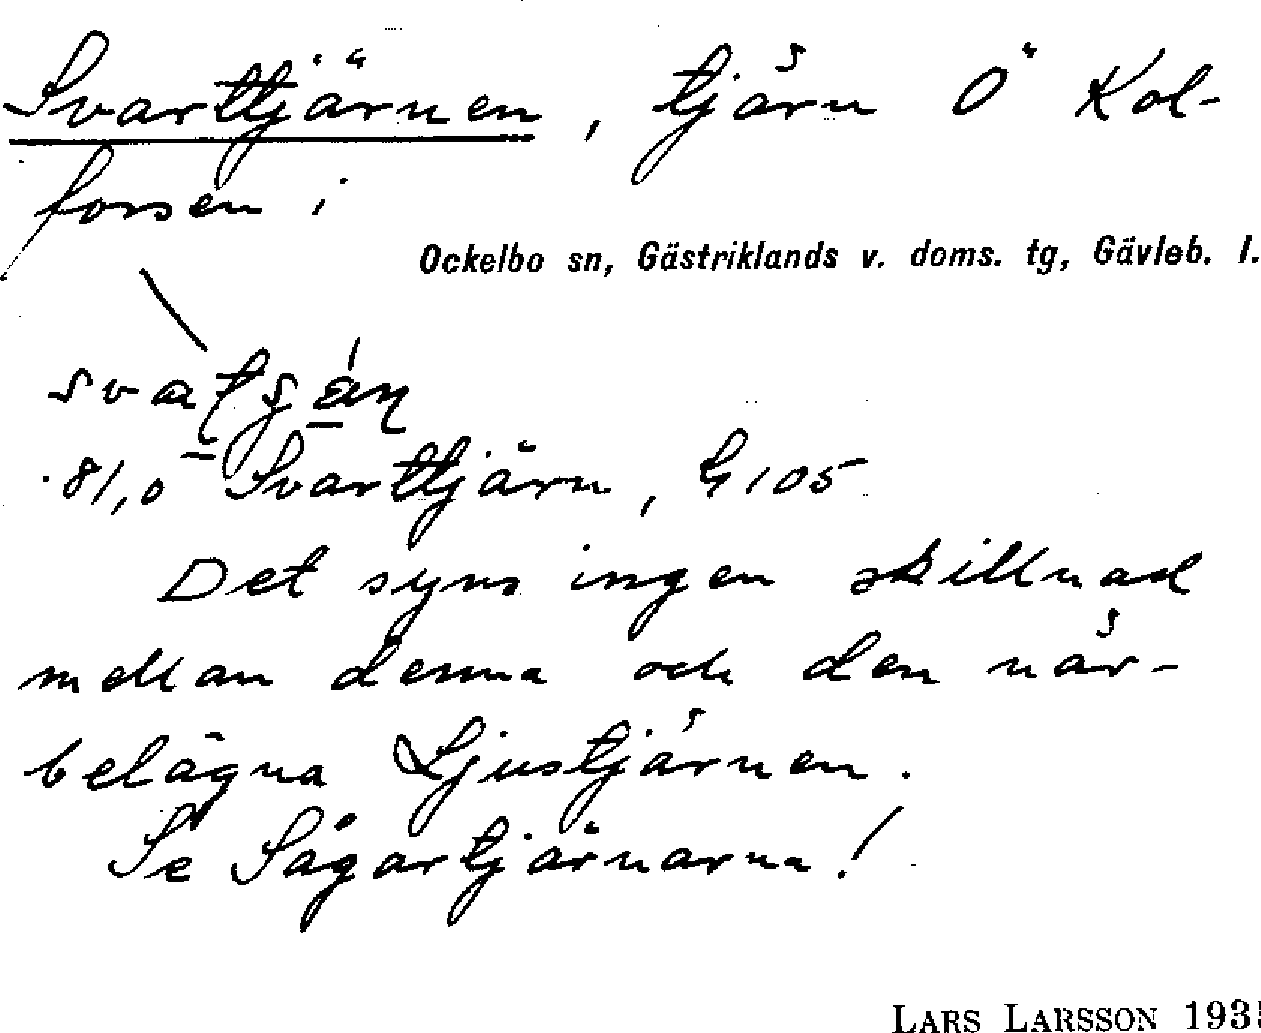 Svarttjärnen, tjärn Ö Kol-
forsen i
Ockelbo sn, Gästriklands v. doms. tg, Gävleb. l.
81,0 Svarttjärn, G105
Det syns ingen skillnad
mellan denna och den när-
belägna Ljustjärnen.
Se Sågartjärnarna!
LARS LARSSON 193